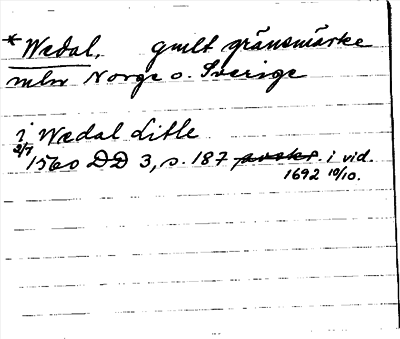 *Wedal, gmlt gränsmärke
mln Norge o. Sverige
i Wædal Litle
3/7 1560 DD 3, s. 187 i vid.
1692 10/10.